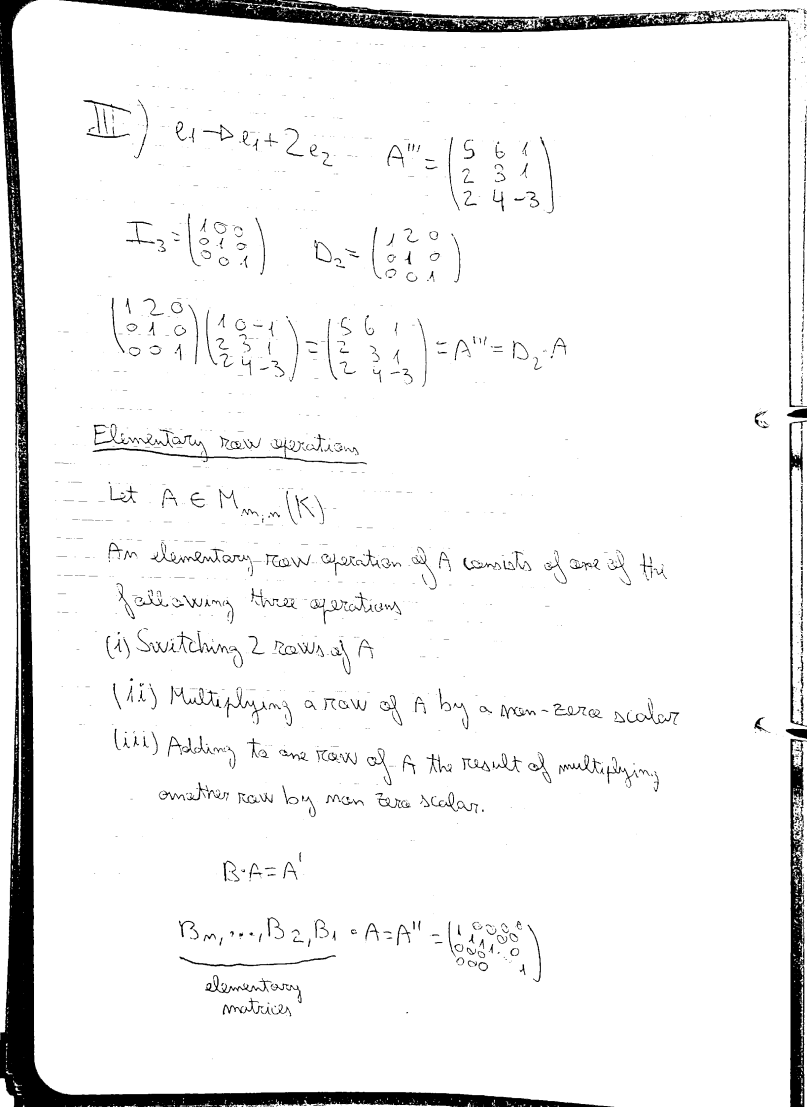 III) e₁→e₁+2e₂ A''' = (5 6 1; 2 3 1; 2 4 -3)
I₃ = (1 0 0; 0 1 0; 0 0 1) D₂ = (1 2 0; 0 1 0; 0 0 1)
(1 2 0; 0 1 0; 0 0 1)(1 0 -1; 2 3 1; 2 4 -3) = (5 6 1; 2 3 1; 2 4 -3) = A''' = D₂·A
Elementary row operations
Let A ∈ M m,n (K)
An elementary row operation of A consists of one of the
following three operations
(i) Switching 2 rows of A
(ii) Multiplying a row of A by a non-zero scalar
(iii) Adding to one row of A the result of multiplying
another row by non zero scalar.
B·A=A'
Bn, ..., B2, B1 · A = A'' =
elementary
matrices